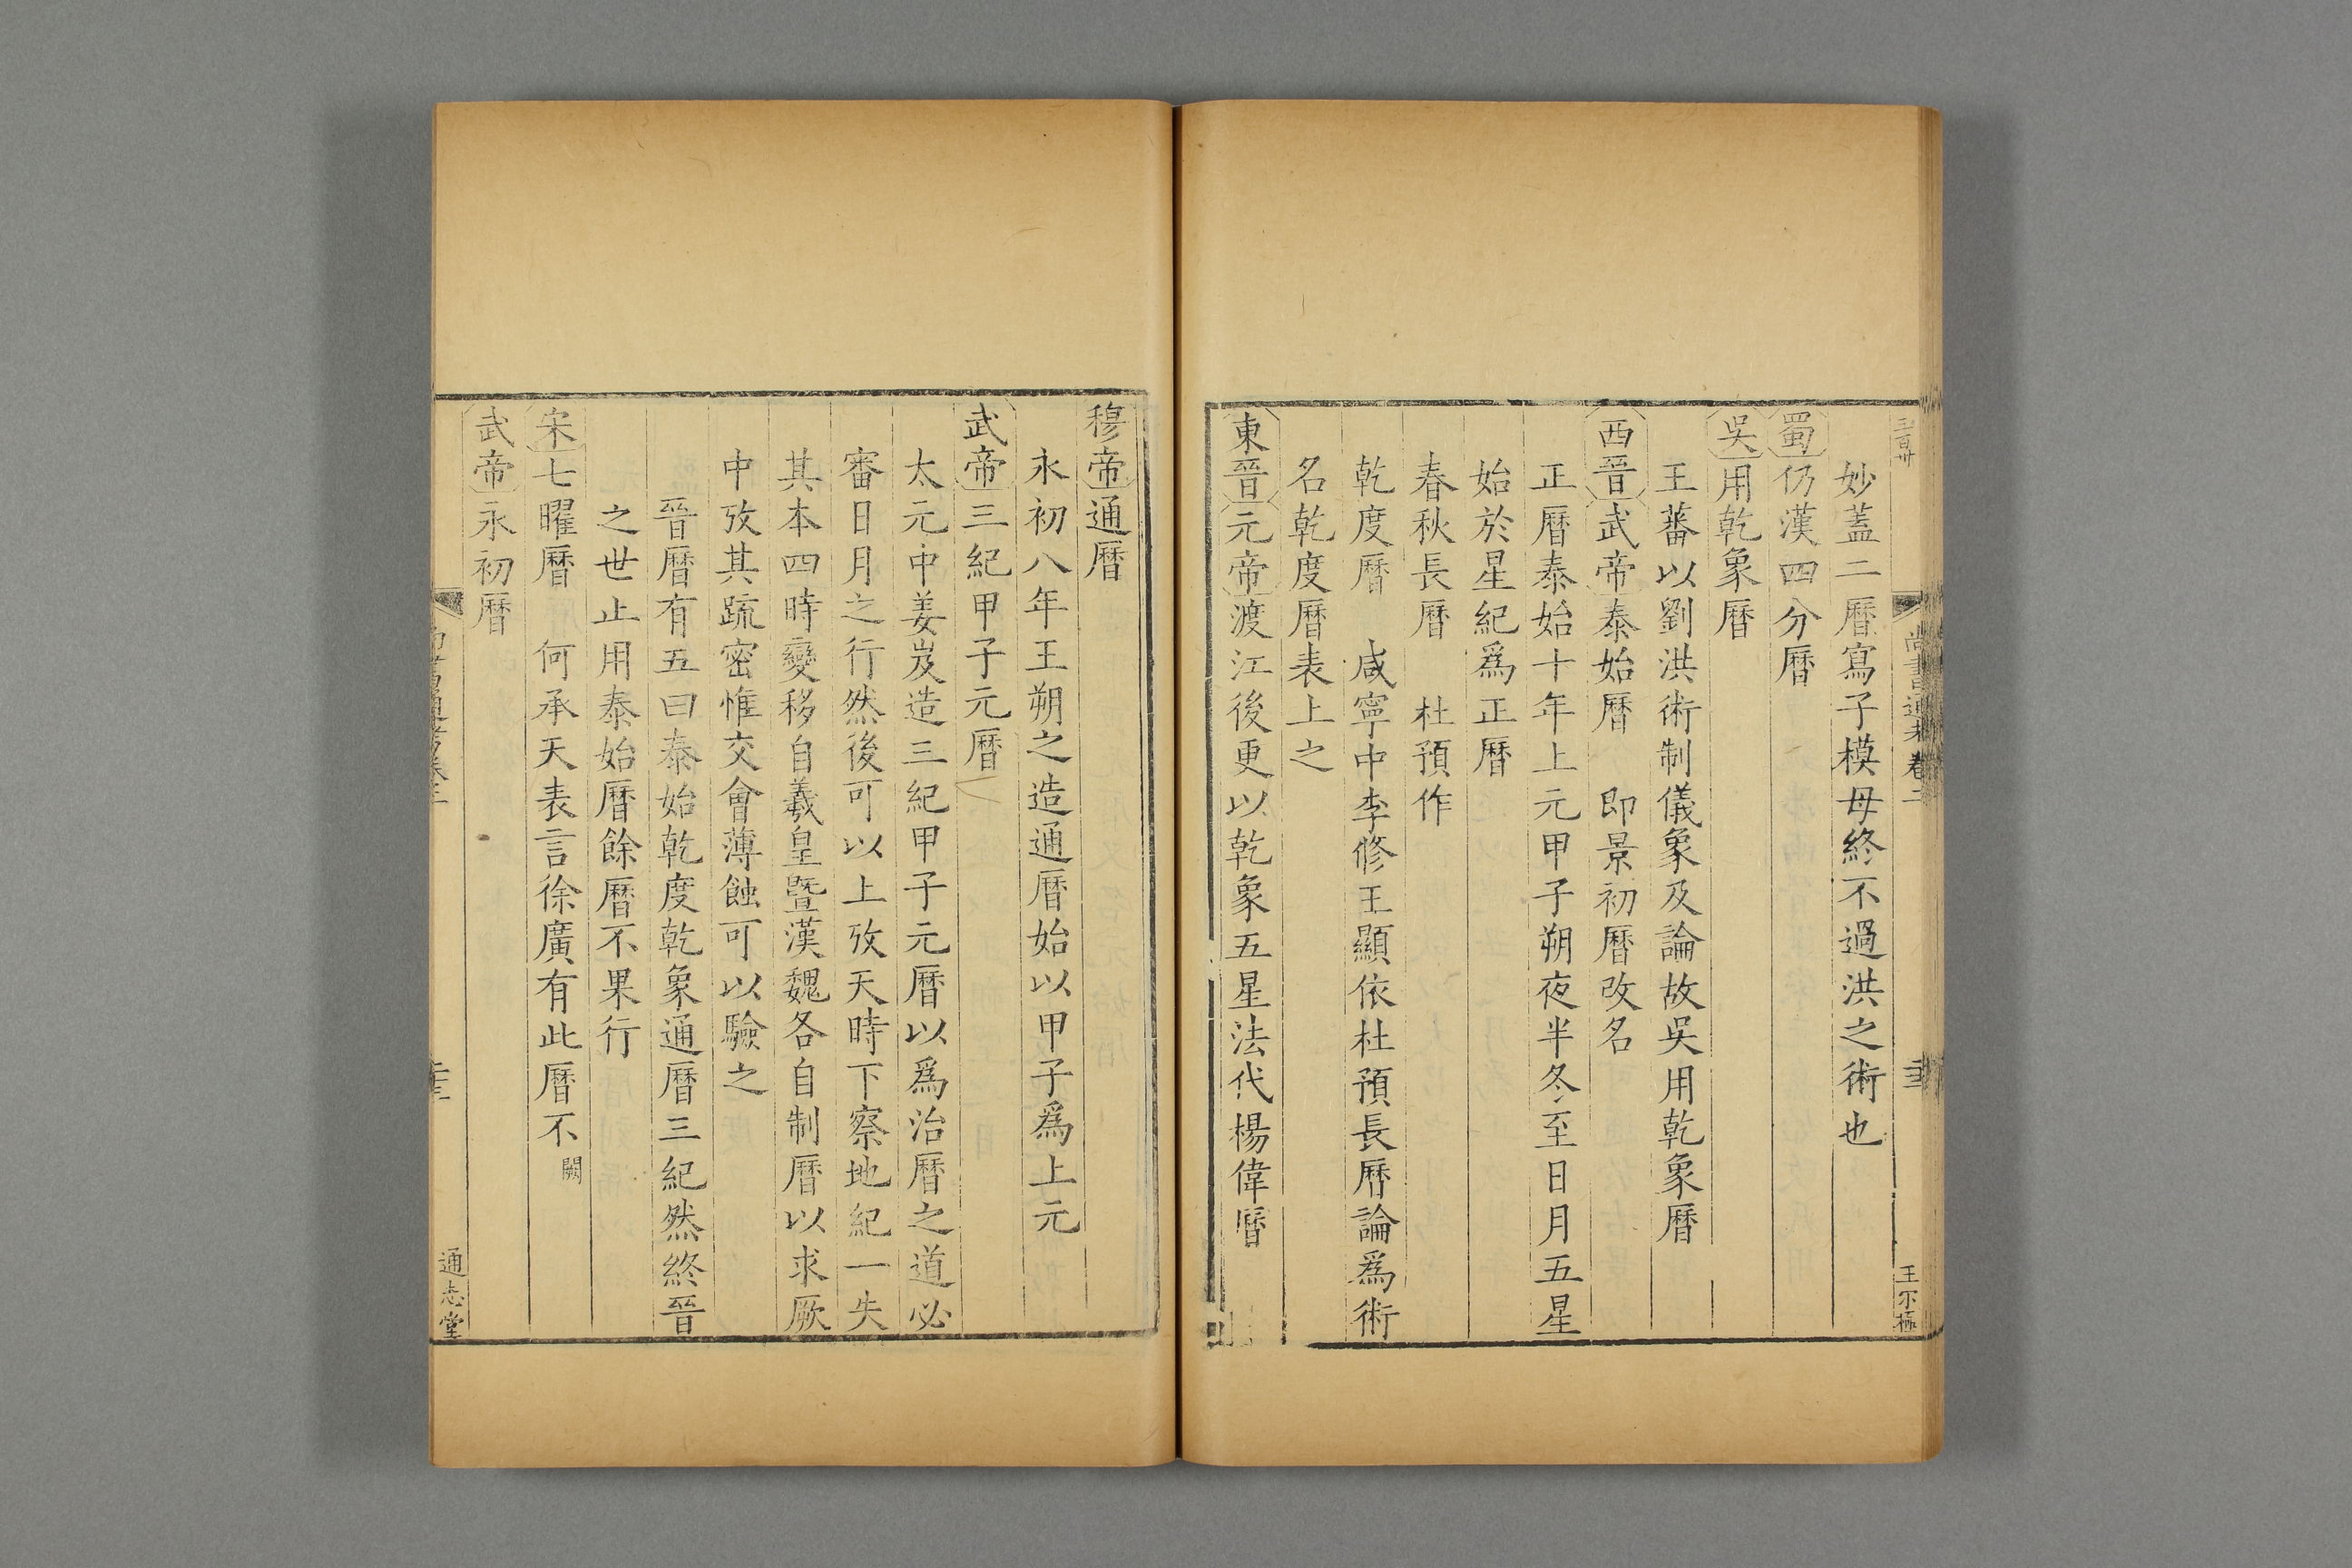 三百卅
尚書通考卷二
王不極
妙蓋二曆寫子模母終不過洪之術也
蜀仍漢四分曆
吳用乾象曆
王蕃以劉洪術制儀象及論故吳用乾象曆
西晉武帝泰始曆 即景初曆改名
正曆泰始十年上元甲子朔夜半冬至日月五星
始於星紀爲正曆
春秋長曆 杜預作
乾度曆 咸寧中李修王顯依杜預長曆論爲術
名乾度曆表上之
東晉元帝渡江後更以乾象五星法代楊偉曆
穆帝通曆
永初八年王朔之造通曆始以甲子爲上元
武帝三紀甲子元曆
太元中姜岌造三紀甲子元曆以爲治曆之道必
審日月之行然後可以上攷天時下察地紀一失
其本四時變移自羲皇曁漢魏各自制曆以求厥
中攷其疏密惟交會薄蝕可以驗之
晉曆有五曰泰始乾度乾象通曆三紀然終晉
之世止用泰始曆餘曆不果行
宋七曜曆 何承天表言徐廣有此曆不闕
武帝永初曆
通志堂